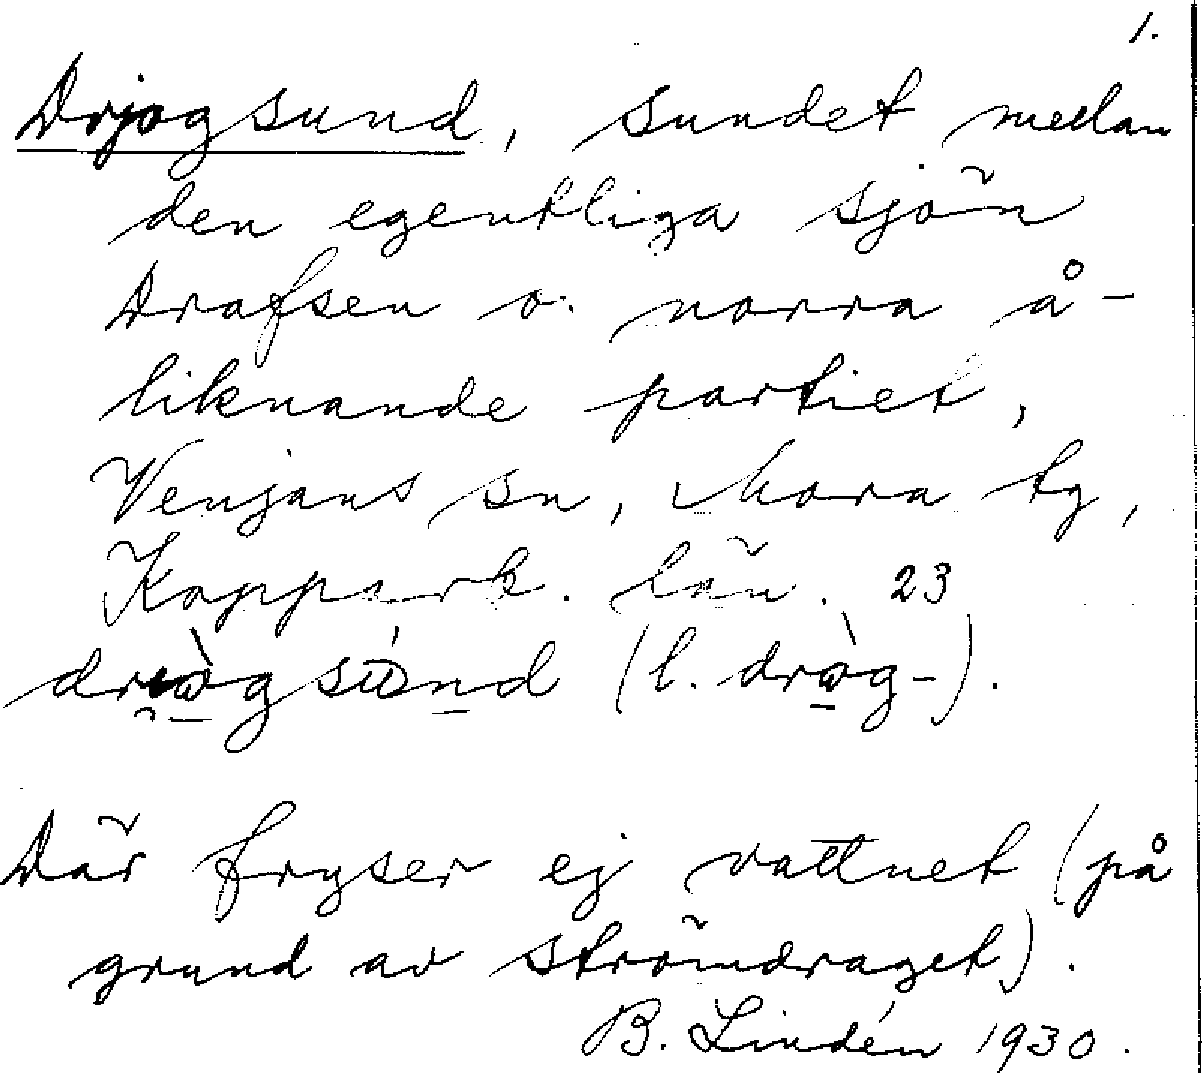 1.
Drjogsund, sundet mellan
den egentliga sjön
Drafsen o. norra å-
liknande partiet,
Venjans sn, Mora tg,
Koppark. län. 23
(l. dròg-).
Där fryser ej vattnet (på
grund av strömdraget).
B. Lindén 1930.